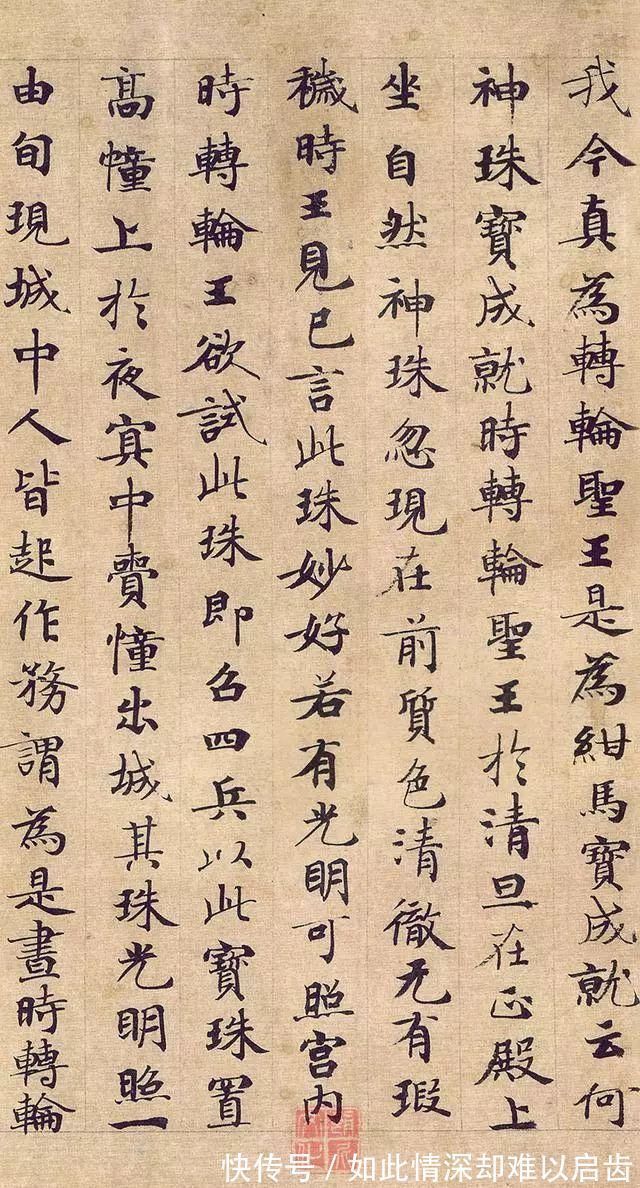 我今真為轉輪聖王是為紺馬寶成就云何
神珠寶成就時轉輪聖王於清旦在正殿上
坐自然神珠忽現在前質色清徹无有瑕
穢時王見已言此珠妙好若有光明可照宮内
時轉輪王欲試此珠即召四兵以此寶珠置
高幢上於夜冥中賷幢出城其珠光明照一
由旬現城中人皆起作務謂為是晝時轉輪
快传号/如此情深却难以启齿